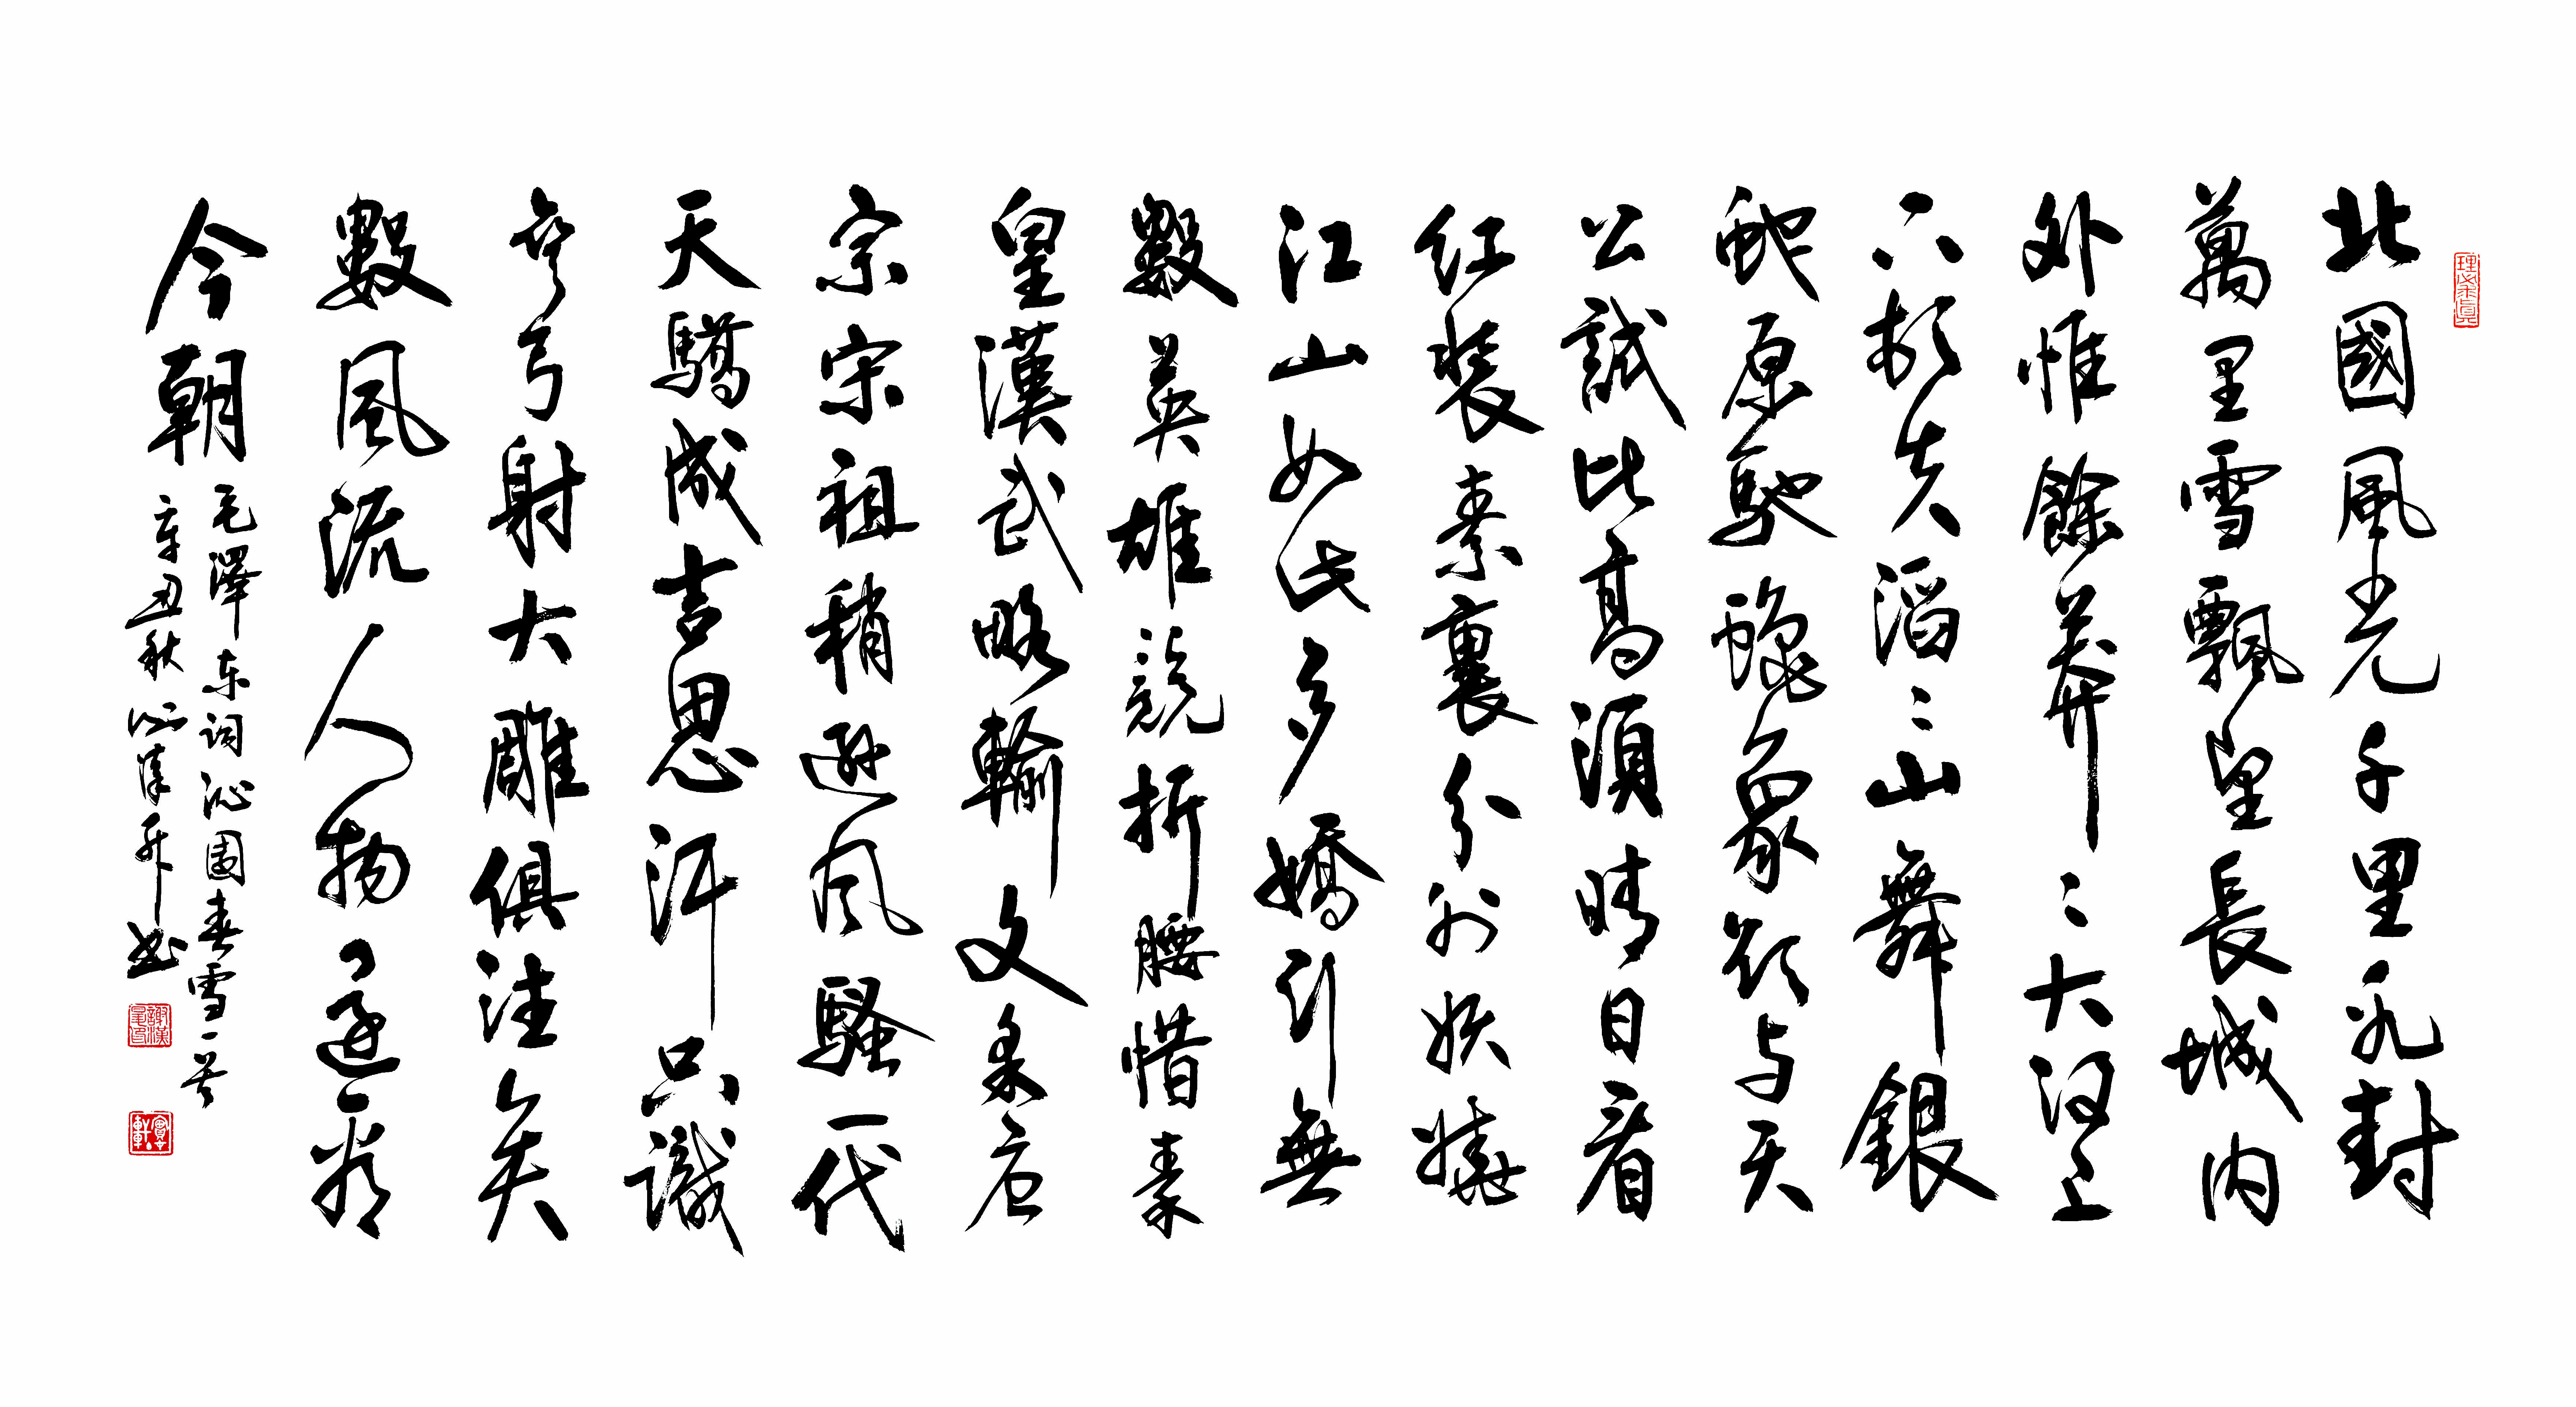 北國風光千里冰封
萬里雪飄望長城內
外惟餘莽〻大河上
下頓失滔〻山舞銀
蛇原馳蠟象欲与天
公試比高須晴日看
红裝素裹分外妖嬈
江山如此多嬌引無
數英雄競折腰惜秦
皇漢武略輸文采唐
宗宋祖稍遜风騷一代
天驕成吉思汗只識
弯弓射大雕俱往矣
數風流人物還看
今朝
毛澤东词沁園春雪一首
辛丑秋謝漢升书